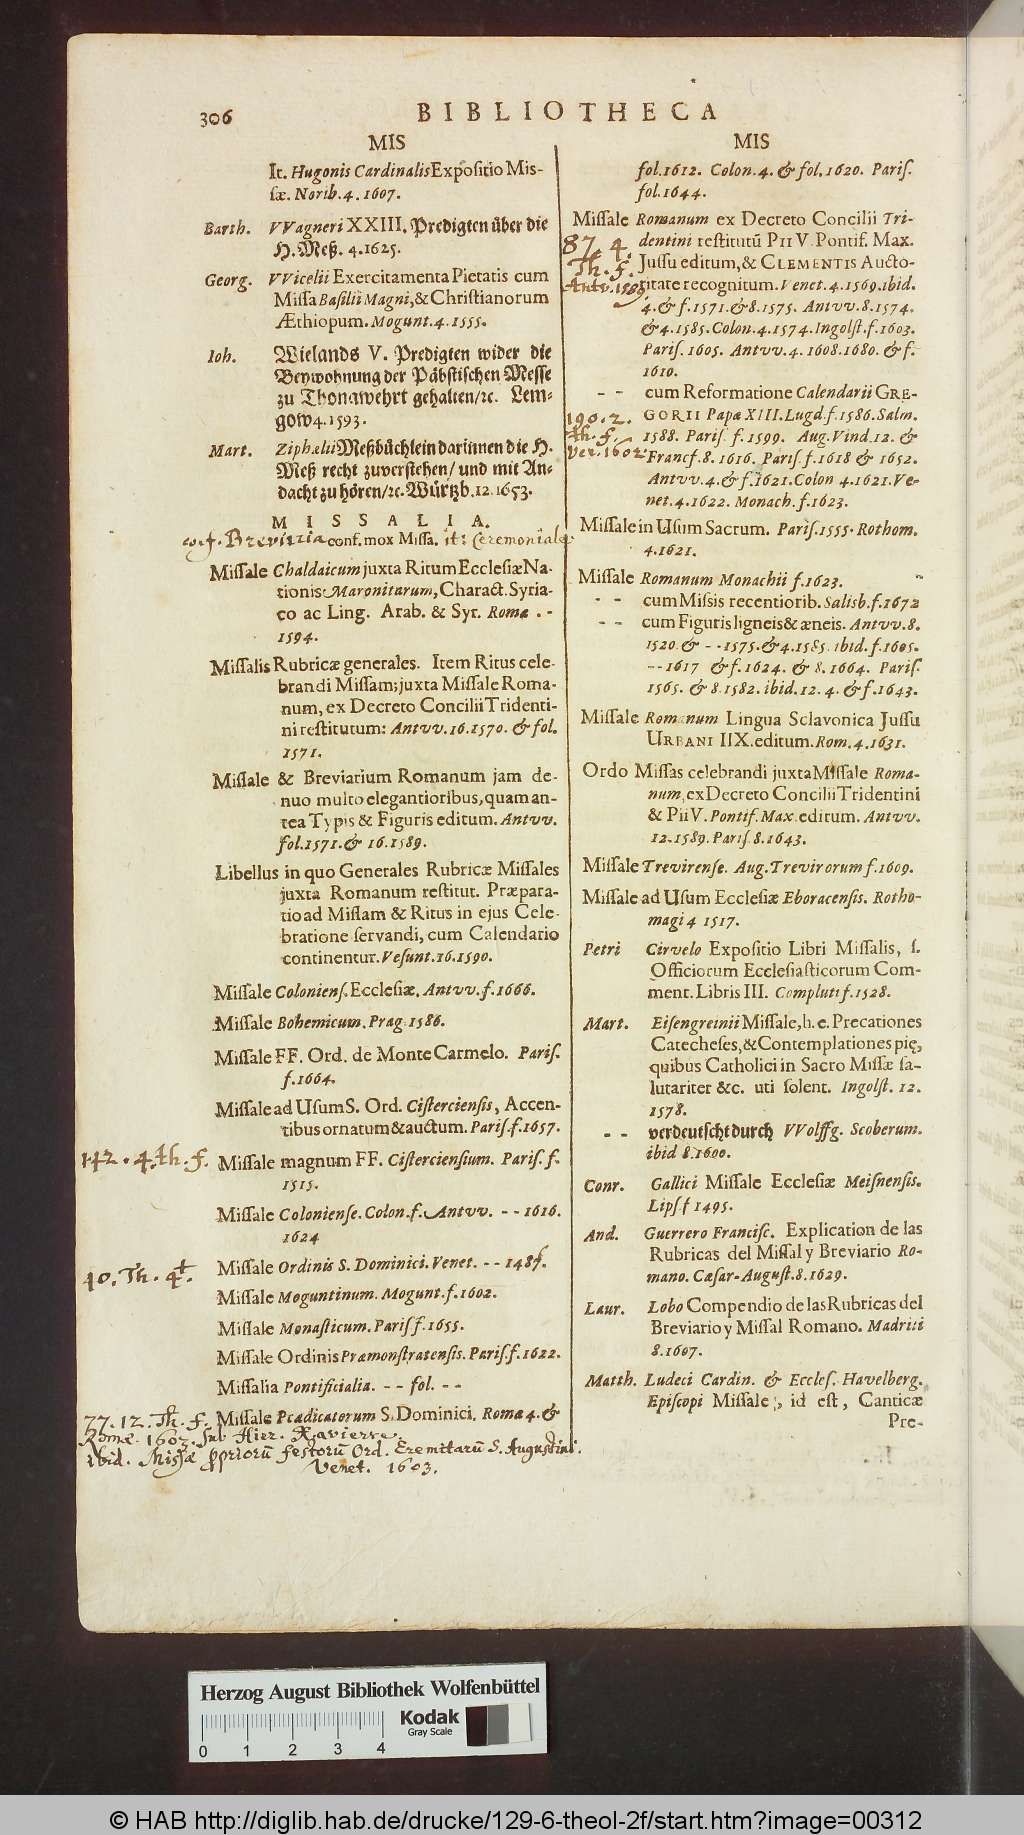 306
BIBLIOTHECA
MIS
It. Hugonis Cardinalis Expositio Mis-
sæ. Norib. 4. 1607.
Barth. VVagneri XXIII. Predigten über die
H. Meß. 4. 1625.
Georg. VVicelii Exercitamenta Pietatis cum
Missa Basilii Magni, & Christianorum
Æthiopum. Mogunt. 4. 1555.
Ioh. Wielands V. Predigten wider die
Beywohnung der Päbstischen Messe
zu Thonawehrt gehalten/ ꝛc. Lem-
gow 4. 1593.
Mart. Ziphælii Meßbüchlein darinnen die H.
Meß recht zuverstehen/ und mit An-
dacht zu hören/ ꝛc. Würtzb. 12. 1653.
MISSALIA.
conf. mox Missa. it: Ceremoniale
Missale Chaldaicum juxta Ritum Ecclesiæ Na-
tionis Maronitarum, Charact. Syria-
co ac Ling. Arab. & Syr. Romæ - -
1594.
Missalis Rubricæ generales. Item Ritus cele-
brandi Missam; juxta Missale Roma-
num, ex Decreto Concilii Tridenti-
ni restitutum: Antvv. 16. 1570. & fol.
1571.
Missale & Breviarium Romanum jam de-
nuo multo elegantioribus, quam an-
tea Typis & Figuris editum. Antvv.
fol. 1571. & 16. 1589.
Libellus in quo Generales Rubricæ Missales
juxta Romanum restitut. Præpara-
tio ad Missam & Ritus in ejus Cele-
bratione servandi, cum Calendario
continentur. Vesunt. 16. 1590.
Missale Coloniens. Ecclesiæ. Antvv. f. 1666.
Missale Bohemicum. Prag. 1586.
Missale FF. Ord. de Monte Carmelo. Paris.
f. 1664.
Missale ad Usum S. Ord. Cisterciensis, Accen-
tibus ornatum & auctum. Paris. f. 1657.
142. 4. th. f. Missale magnum FF. Cisterciensium. Paris. f.
1515.
Missale Coloniense. Colon. f. Antvv. - - 1616.
1624
40. Th. 4t. Missale Ordinis S. Dominici. Venet. - - 148
Missale Moguntinum. Mogunt. f. 1602.
Missale Monasticum. Paris f. 1655.
Missale Ordinis Præmonstratensis. Paris. f. 1622.
Missalia Pontificialia. - - fol. - -
77. 12. Th. f. Missale Prædicatorum S. Dominici. Romæ 4. &
Romæ. 1603. sub Hier. Xavierre.
ibid. Missæ ppriorū festorū Ord. Eremitarū S. Augustini.
Venet. 1603.
MIS
fol. 1612. Colon. 4. & fol. 1620. Paris.
fol. 1644.
Missale Romanum ex Decreto Concilii Tri-
dentini restitutũ PII V. Pontif. Max.
Jussu editum, & CLEMENTIS Aucto-
ritate recognitum. Venet. 4. 1569. ibid.
4. & f. 1571. & 8. 1575. Antvv. 8. 1574.
& 4. 1585. Colon. 4. 1574. Ingolst. f. 1603.
Paris. 1605. Antvv. 4. 1608. 1680. & f.
1610.
87. 4.
Th. f.
- - cum Reformatione Calendarii GRE-
GORII Papæ XIII. Lugd. f. 1586. Salm.
1588. Paris. f. 1599. Aug. Vind. 12. &
Francf. 8. 1616. Paris. f. 1618 & 1652.
Antvv. 4. & f. 1621. Colon 4. 1621. Ve-
net. 4. 1622. Monach. f. 1623.
190. 2.
th. f.
Ver. 1602
Missale in Usum Sacrum. Paris. 1555. Rothom.
4. 1621.
Missale Romanum Monachii f. 1623.
- - cum Missis recentiorib. Salisb. f. 1672
- - cum Figuris ligneis & æneis. Antvv. 8.
1520. & - - 1575. & 4. 1585. ibid. f. 1605.
- - 1617 & f. 1624. & 8. 1664. Paris.
1565. & 8. 1582. ibid. 12. 4. & f. 1643.
Missale Romanum Lingua Sclavonica Jussu
URBANI IIX. editum. Rom. 4. 1631.
Ordo Missas celebrandi juxta Missale Roma-
num, ex Decreto Concilii Tridentini
& Pii V. Pontif. Max. editum. Antvv.
12. 1589. Paris. 8. 1643.
Missale Trevirense. Aug. Trevirorum f. 1609.
Missale ad Usum Ecclesiæ Eboracensis. Rotho-
magi 4 1517.
Petri Cirvelo Expositio Libri Missalis, s.
Officiorum Ecclesiasticorum Com-
ment. Libris III. Compluti f. 1528.
Mart. Eisengreinii Missale, h. e. Precationes
Catecheses, & Contemplationes pię,
quibus Catholici in Sacro Missæ sa-
lutariter &c. uti solent. Ingolst. 12.
1578.
- - verdeutscht durch VVolffg. Scoberum.
ibid 8. 1600.
Conr. Gallici Missale Ecclesiæ Meisnensis.
Lips f 1495.
And. Guerrero Francisc. Explication de las
Rubricas del Missal y Breviario Ro-
mano. Cæsar-August. 8. 1629.
Laur. Lobo Compendio de las Rubricas del
Breviario y Missal Romano. Madriti
8. 1607.
Matth. Ludeci Cardin. & Eccles. Havelberg.
Episcopi Missale, id est, Canticæ
Pre-
Herzog August Bibliothek Wolfenbüttel
Kodak
Gray Scale
0 1 2 3 4
© HAB http://diglib.hab.de/drucke/129-6-theol-2f/start.htm?image=00312